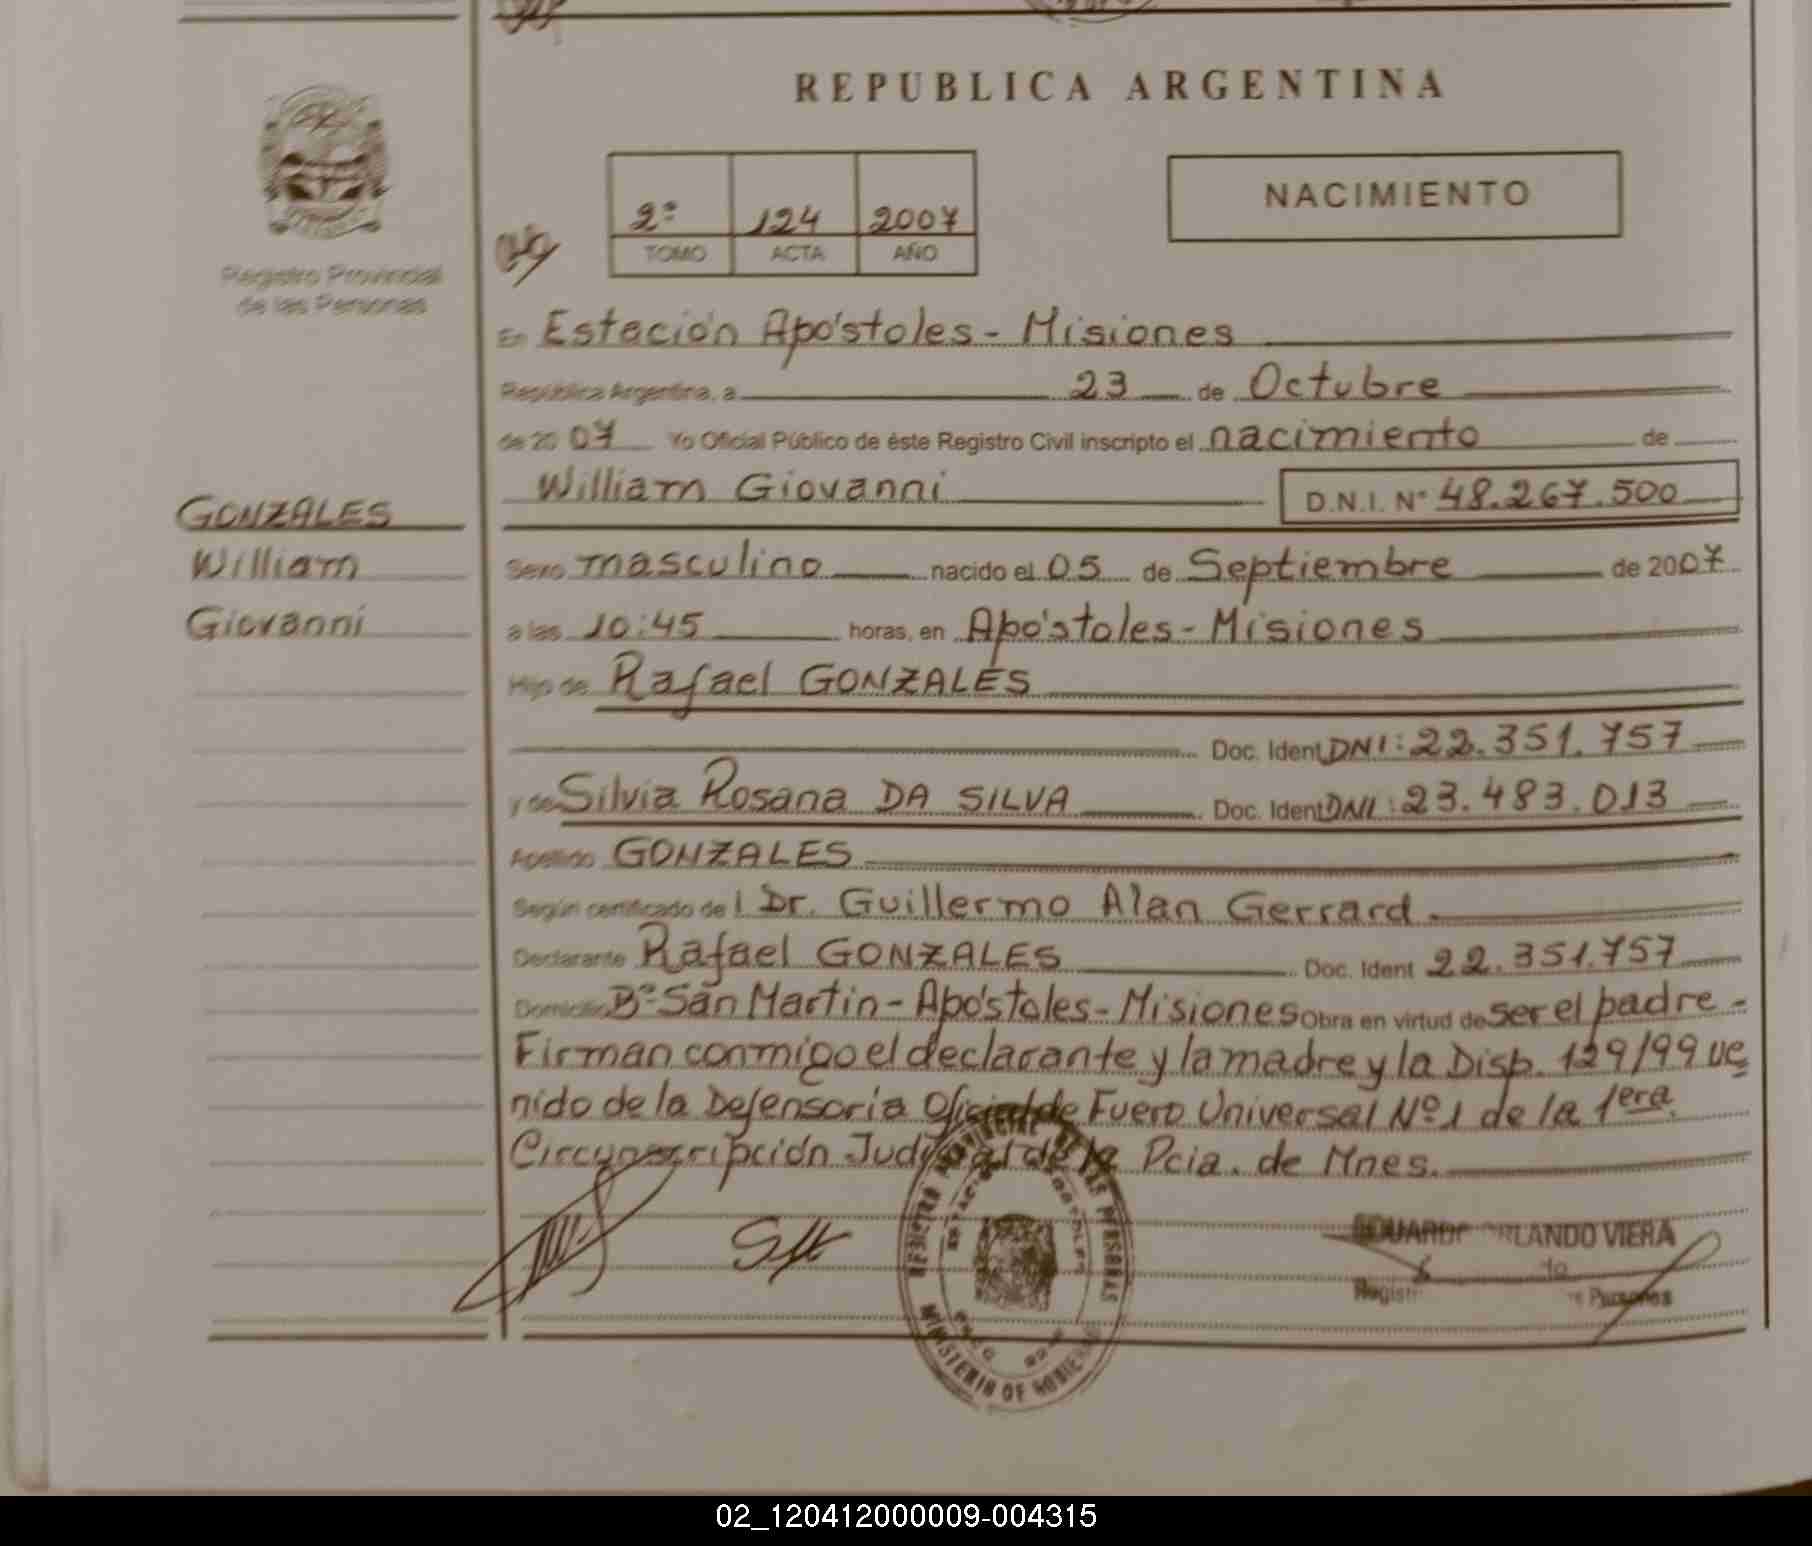 REPUBLICA ARGENTINA
Registro Provincial
de las Personas
2º 124 2007
TOMO ACTA AÑO
NACIMIENTO
En Estación Apóstoles - Misiones
República Argentina, a 23 de Octubre
de 2007 Yo Oficial Público de éste Registro Civil inscripto el nacimiento de
William Giovanni D.N.I. Nº 48.267.500
GONZALES
William
Giovanni
Sexo masculino nacido el 05 de Septiembre de 2007
a las 10:45 horas, en Apóstoles - Misiones
Hijo de Rafael GONZALES
Doc. Ident DNI: 22.351.757
y de Silvia Rosana DA SILVA Doc. Ident DNI: 23.483.013
Apellido GONZALES
Según certificado del Dr. Guillermo Alan Gerrard.
Declarante Rafael GONZALES Doc. Ident 22.351.757
Domicilio Bº San Martin - Apóstoles - Misiones Obra en virtud de ser el padre -
Firman conmigo el declarante y la madre y la Disp. 129/99 ve
nido de la Defensoria Oficial de Fuero Universal Nº 1 de la 1era
Circunscripción Judicial de la Pcia. de Mnes.
REGISTRO PROVINCIAL DE LAS PERSONAS
MINISTERIO DE GOBIERNO
EDUARDO ORLANDO VIERA
Personas
02_120412000009-004315